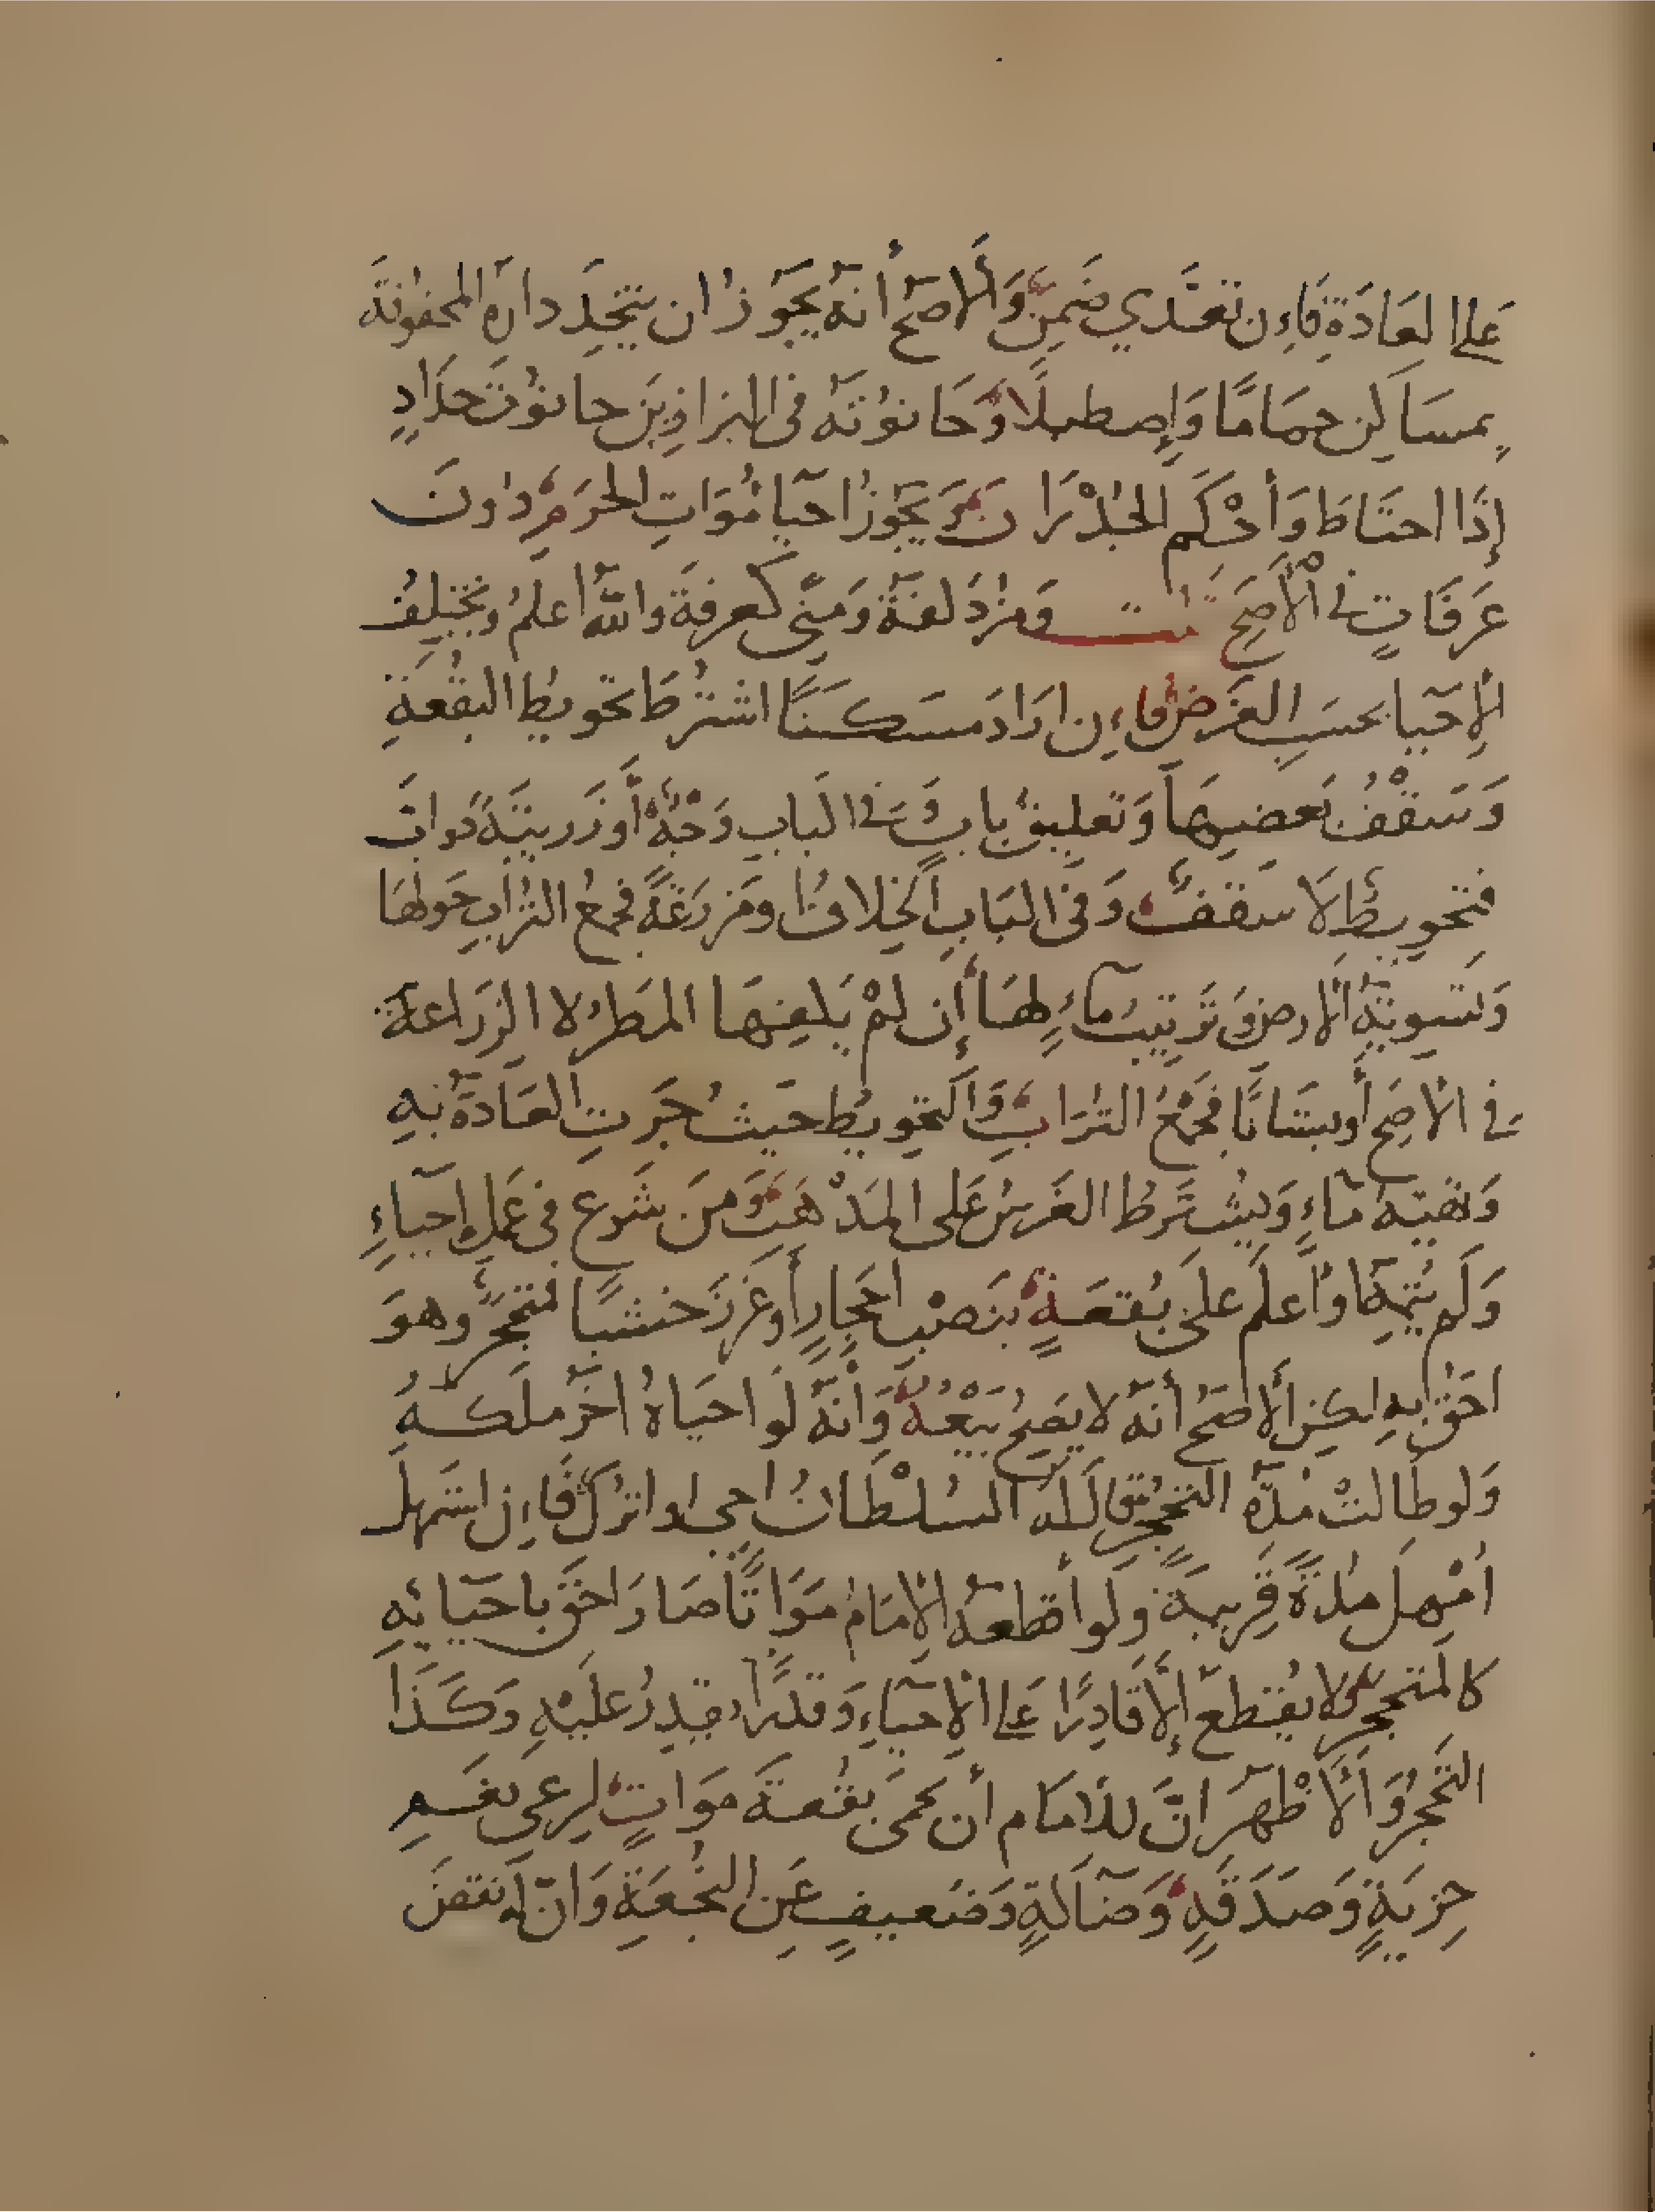 على العَادَةِ فَإن تعَدّي ضمِنَ وَالأصَحّ أنهُ يجَوزُ ان يتخِذَ دارَه المحفوفةَ
بمسَاكِن حمَامًا وَإصطبلًا وَحَانوُتَهُ في البزازِينَ حانوُتَ حدَادٍ
إذَا احتَاطَ وَأحْكَم الجُدْرَان وَيَجُوزُ احيَا مَوَاتِ الحرَمِ دوُنَ
عَرَفَاتٍ في الْأصَحّ قلت وَمزدَلفةُ وَمِنًى كعرفةَ والله اعلمُ ويختلِفُ
الإحيَا بحسَبِ الغَرَض فإن ارَادَ مسَكنًا اشترُطَ تحويطُ البقُعَةِ
وَسَقْفُ بَعضِهَا وَتعليق بابٍ وَفي البابِ وَجْهٌ أو زَريبَةَ دَوابَّ
فتحويطٌ لَا سَقفٌ وَفي البَابِ الخِلافُ او مَزرَعَةً فجمعُ التُرابِ حَولهَا
وَتسَويَةُ الأرضِ وَترَتيبُ مآءٍ لهَا إن لمْ يَكفِهَا المَطرُ لا الزِرَاعَةُ
في الأصَحِ أو بسُتَانًا فجَمْعُ الترُابِ وَالتحويطُ حَيثُ جَرَتِ العَادَةُ بهِ
وَتهيئةُ مَاءٍ وَيشُترَطُ الغَرسُ عَلى المَذْهَبِ وَمَن شَرعَ في عَمَلِ إحيَاءٍ
وَلَم يُتمِهُ اوْ اَعلَم عَلىَ بُقعَةٍ بنَصْبِ احجَارٍ أو غَرَزَ خشَبًا فمتحجرٌ وهوَ
احَقُ بهِ لكِن الأصَحُ أنهُ لا يصَحُ بَيْعُهُ وَأنْهُ لَو احيَاهُ اخَرُ ملَكَهُ
وَلو طَالتْ مُدّةُ التحجُر قالَ لَهُ السُلْطانُ احي او اترُك فَإن استَمهل
أمْهِل مُدّةً قَرِيبَةً وَلَو أقطعَهُ الإمَامُ مَوَاتًا صَارَ احَقَ باحيَائهِ
كالمُتحجرِ وَلا يقُطعُ إلّا قَادِرًا على الإحيَاءِ وَقَدرًا يقدِرُ عَلَيْهِ وَكذَا
التحجُرُ وَالأظْهَرُ انَّ للإمَام أن يحَمىَ بقُعةَ موَاتٍ لِرعي نعَمِ
جِزيَةٍ وَصدَقَةٍ وَضآلةٍ وَضَعيفٍ عَنِ النجُعَةِ وَانّ له نقضَ